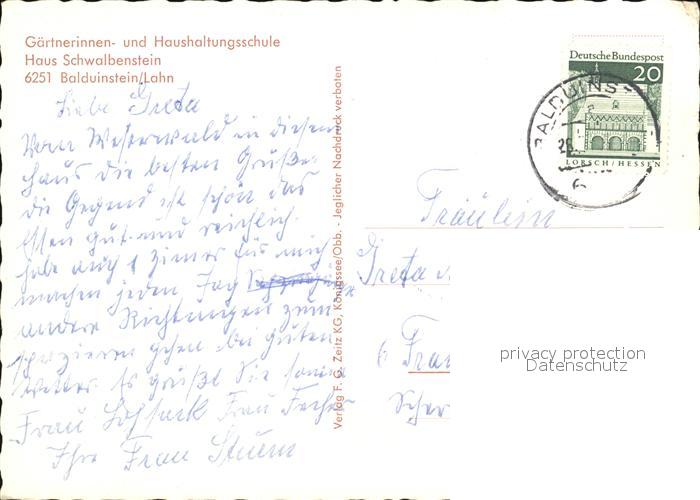 Gärtnerinnen- und Haushaltungsschule
Haus Schwalbenstein
6251 Balduinstein/Lahn
Liebe Greta
Vom Westerwald in diesem
Haus die besten Grüße.
die Gegend ist schön das
Essen gut und reichlich.
habe auch 1 zimer für mich
machen jeden Tag
andere Richtungen zum
spazieren gehen bei guten
Wetter. Es grüßt Sie sowie
Frau Frau
Ihre Frau Sturm
Verlag F. G. Zeitz KG, Königssee/Obb. - Jeglicher Nachdruck verboten
Deutsche Bundespost
20
LORSCH/HESSEN
BALDUINS
Fräulein
Greta
6 Fran
Scher
privacy protection
Datenschutz